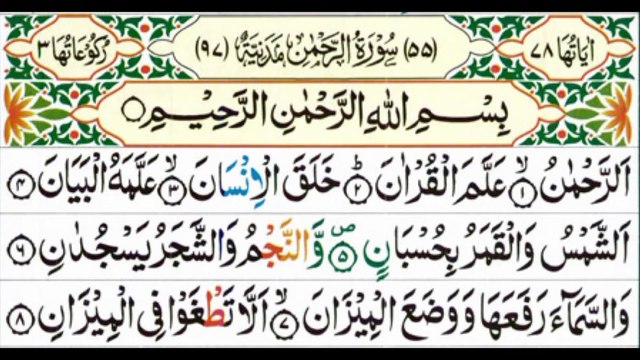 اٰیاتها ۷۸ (۵۵) سُوْرَةُ الرَّحْمٰنِ مَدَنِیَّةٌ (۹۷) رکوعاتها ۳
بِسْمِ اللهِ الرَّحْمٰنِ الرَّحِیْمِ
اَلرَّحْمٰنُ ۙ﴿۱﴾ عَلَّمَ الْقُرْاٰنَ ؕ﴿۲﴾ خَلَقَ الْاِنْسَانَ ۙ﴿۳﴾ عَلَّمَهُ الْبَیَانَ ﴿۴﴾
اَلشَّمْسُ وَالْقَمَرُ بِحُسْبَانٍ ۪﴿۵﴾ وَّالنَّجْمُ وَالشَّجَرُ یَسْجُدٰنِ ﴿۶﴾
وَالسَّمَآءَ رَفَعَهَا وَوَضَعَ الْمِیْزَانَ ۙ﴿۷﴾ اَلَّا تَطْغَوْا فِی الْمِیْزَانِ ﴿۸﴾